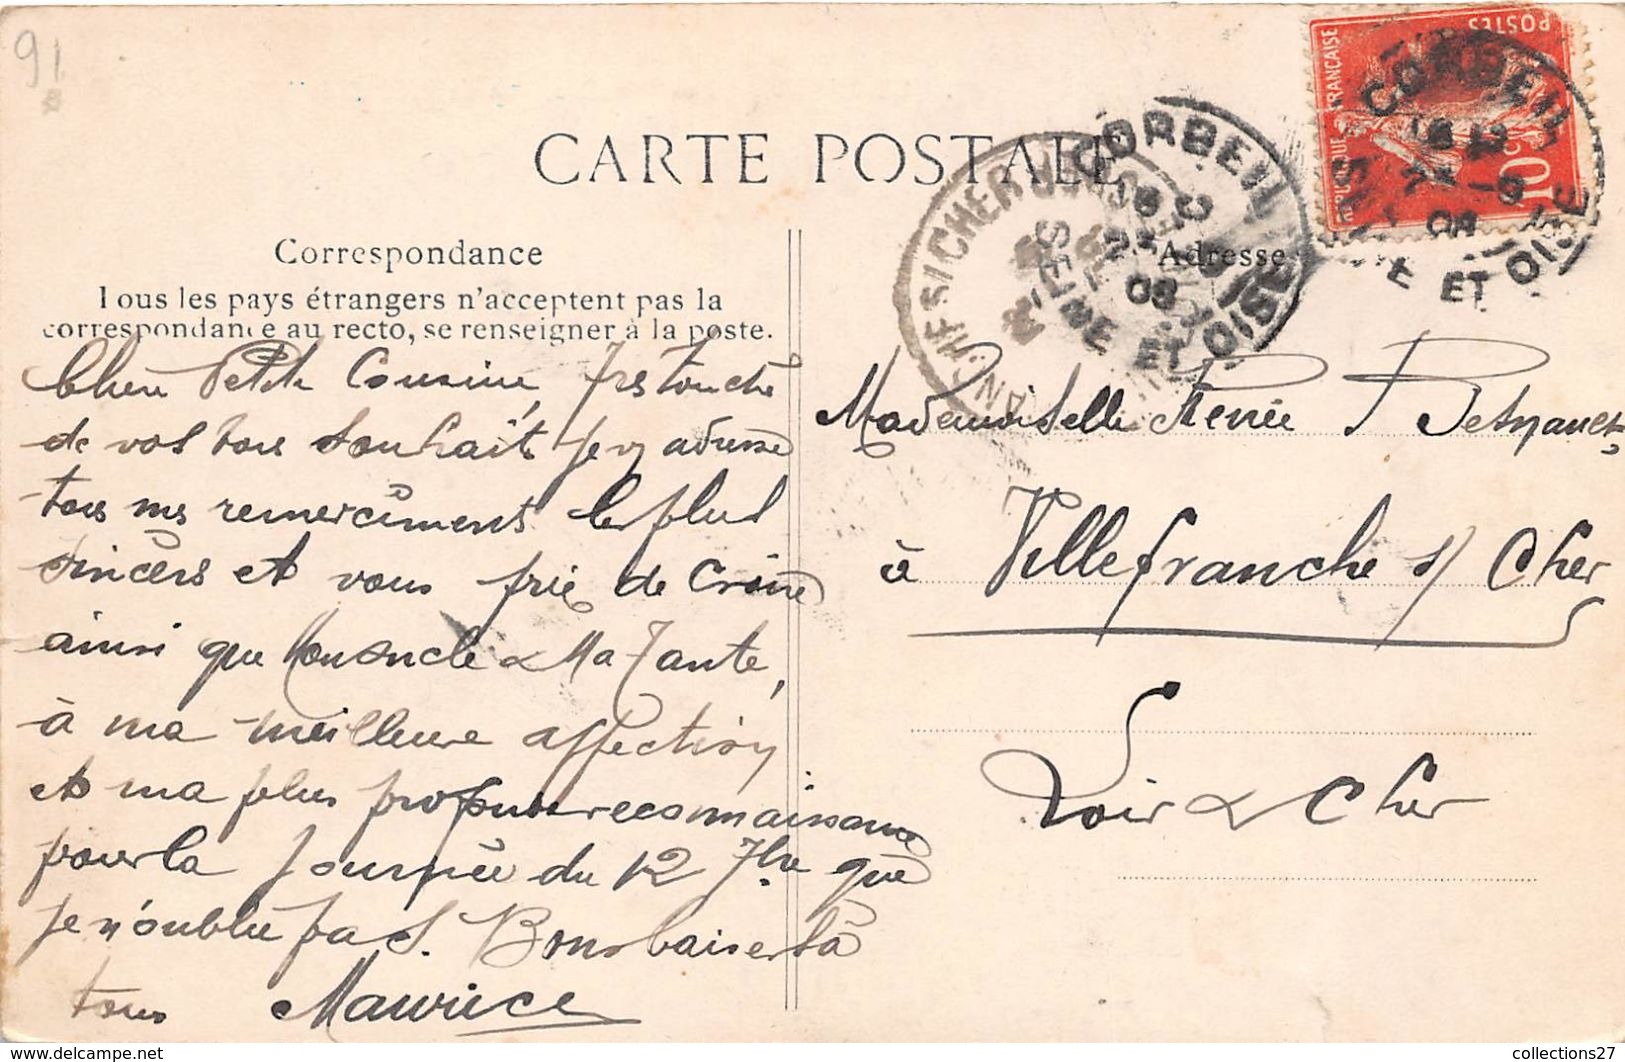 91
CARTE POSTALE
Correspondance
Tous les pays étrangers n'acceptent pas la
correspondance au recto, se renseigner à la poste.
Chère Petite Cousine, Très touché
de vos bons souhaits je vs adresse
tous mes remerciments les plus
sincères et vous prie de croire
ainsi que Mon oncle & Ma Tante,
à ma meilleure affection
et ma plus profonde reconnaissance
pour la journée du 12 7bre que
je n'oublie pas. Bons baisers à
tous Maurice
Adresse
Mademoiselle Renée
à Villefranche s/ Cher
Loir & Cher
CORBEIL
08
SEINE ET OISE
POSTES
RÉPUBLIQUE FRANÇAISE
10c
CORBEIL
08
SEINE ET OISE
collections27